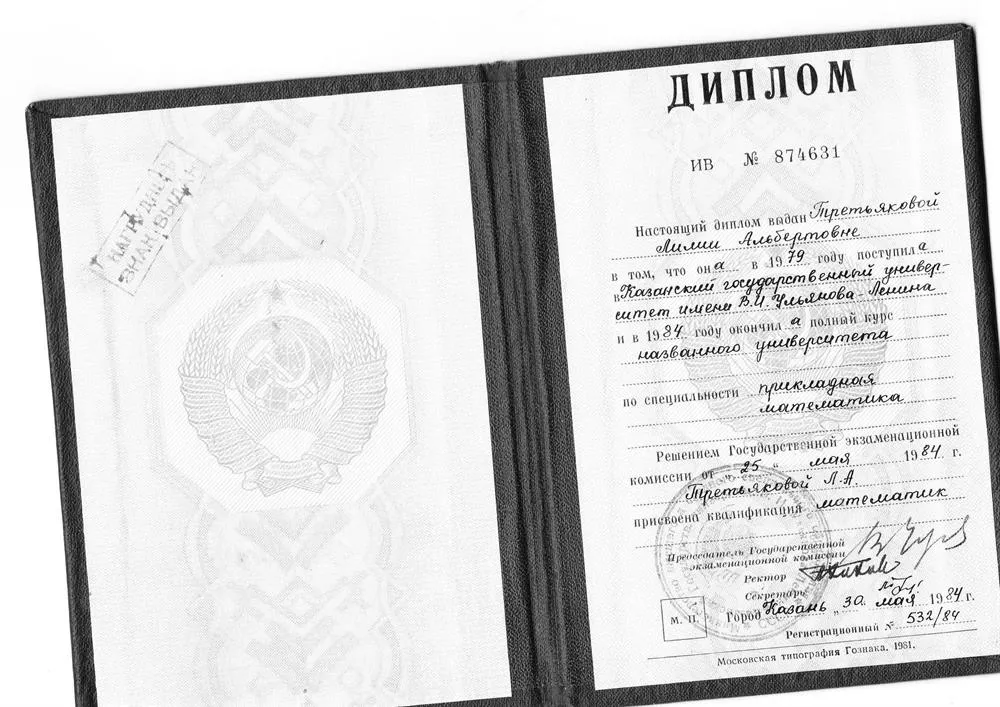 НАГРУДНЫЙ
ЗНАК ВЫДАН
ДИПЛОМ
ИВ № 874631
Настоящий диплом выдан Третьяковой
Лилии Альбертовне
в том, что она в 1979 году поступила
в Казанский государственный универ-
ситет имени В.И. Ульянова-Ленина
и в 1984 году окончила полный курс
названного университета
по специальности прикладная
математика
Решением Государственной экзаменационной
комиссии от 25 " мая 1984 г.
Третьяковой Л.А.
присвоена квалификация математик
Председатель Государственной
экзаменационной комиссии
Ректор
Секретарь
М. П. Город Казань „ 30 " мая 1984 г.
Регистрационный № 532/84
Московская типография Гознака. 1981.